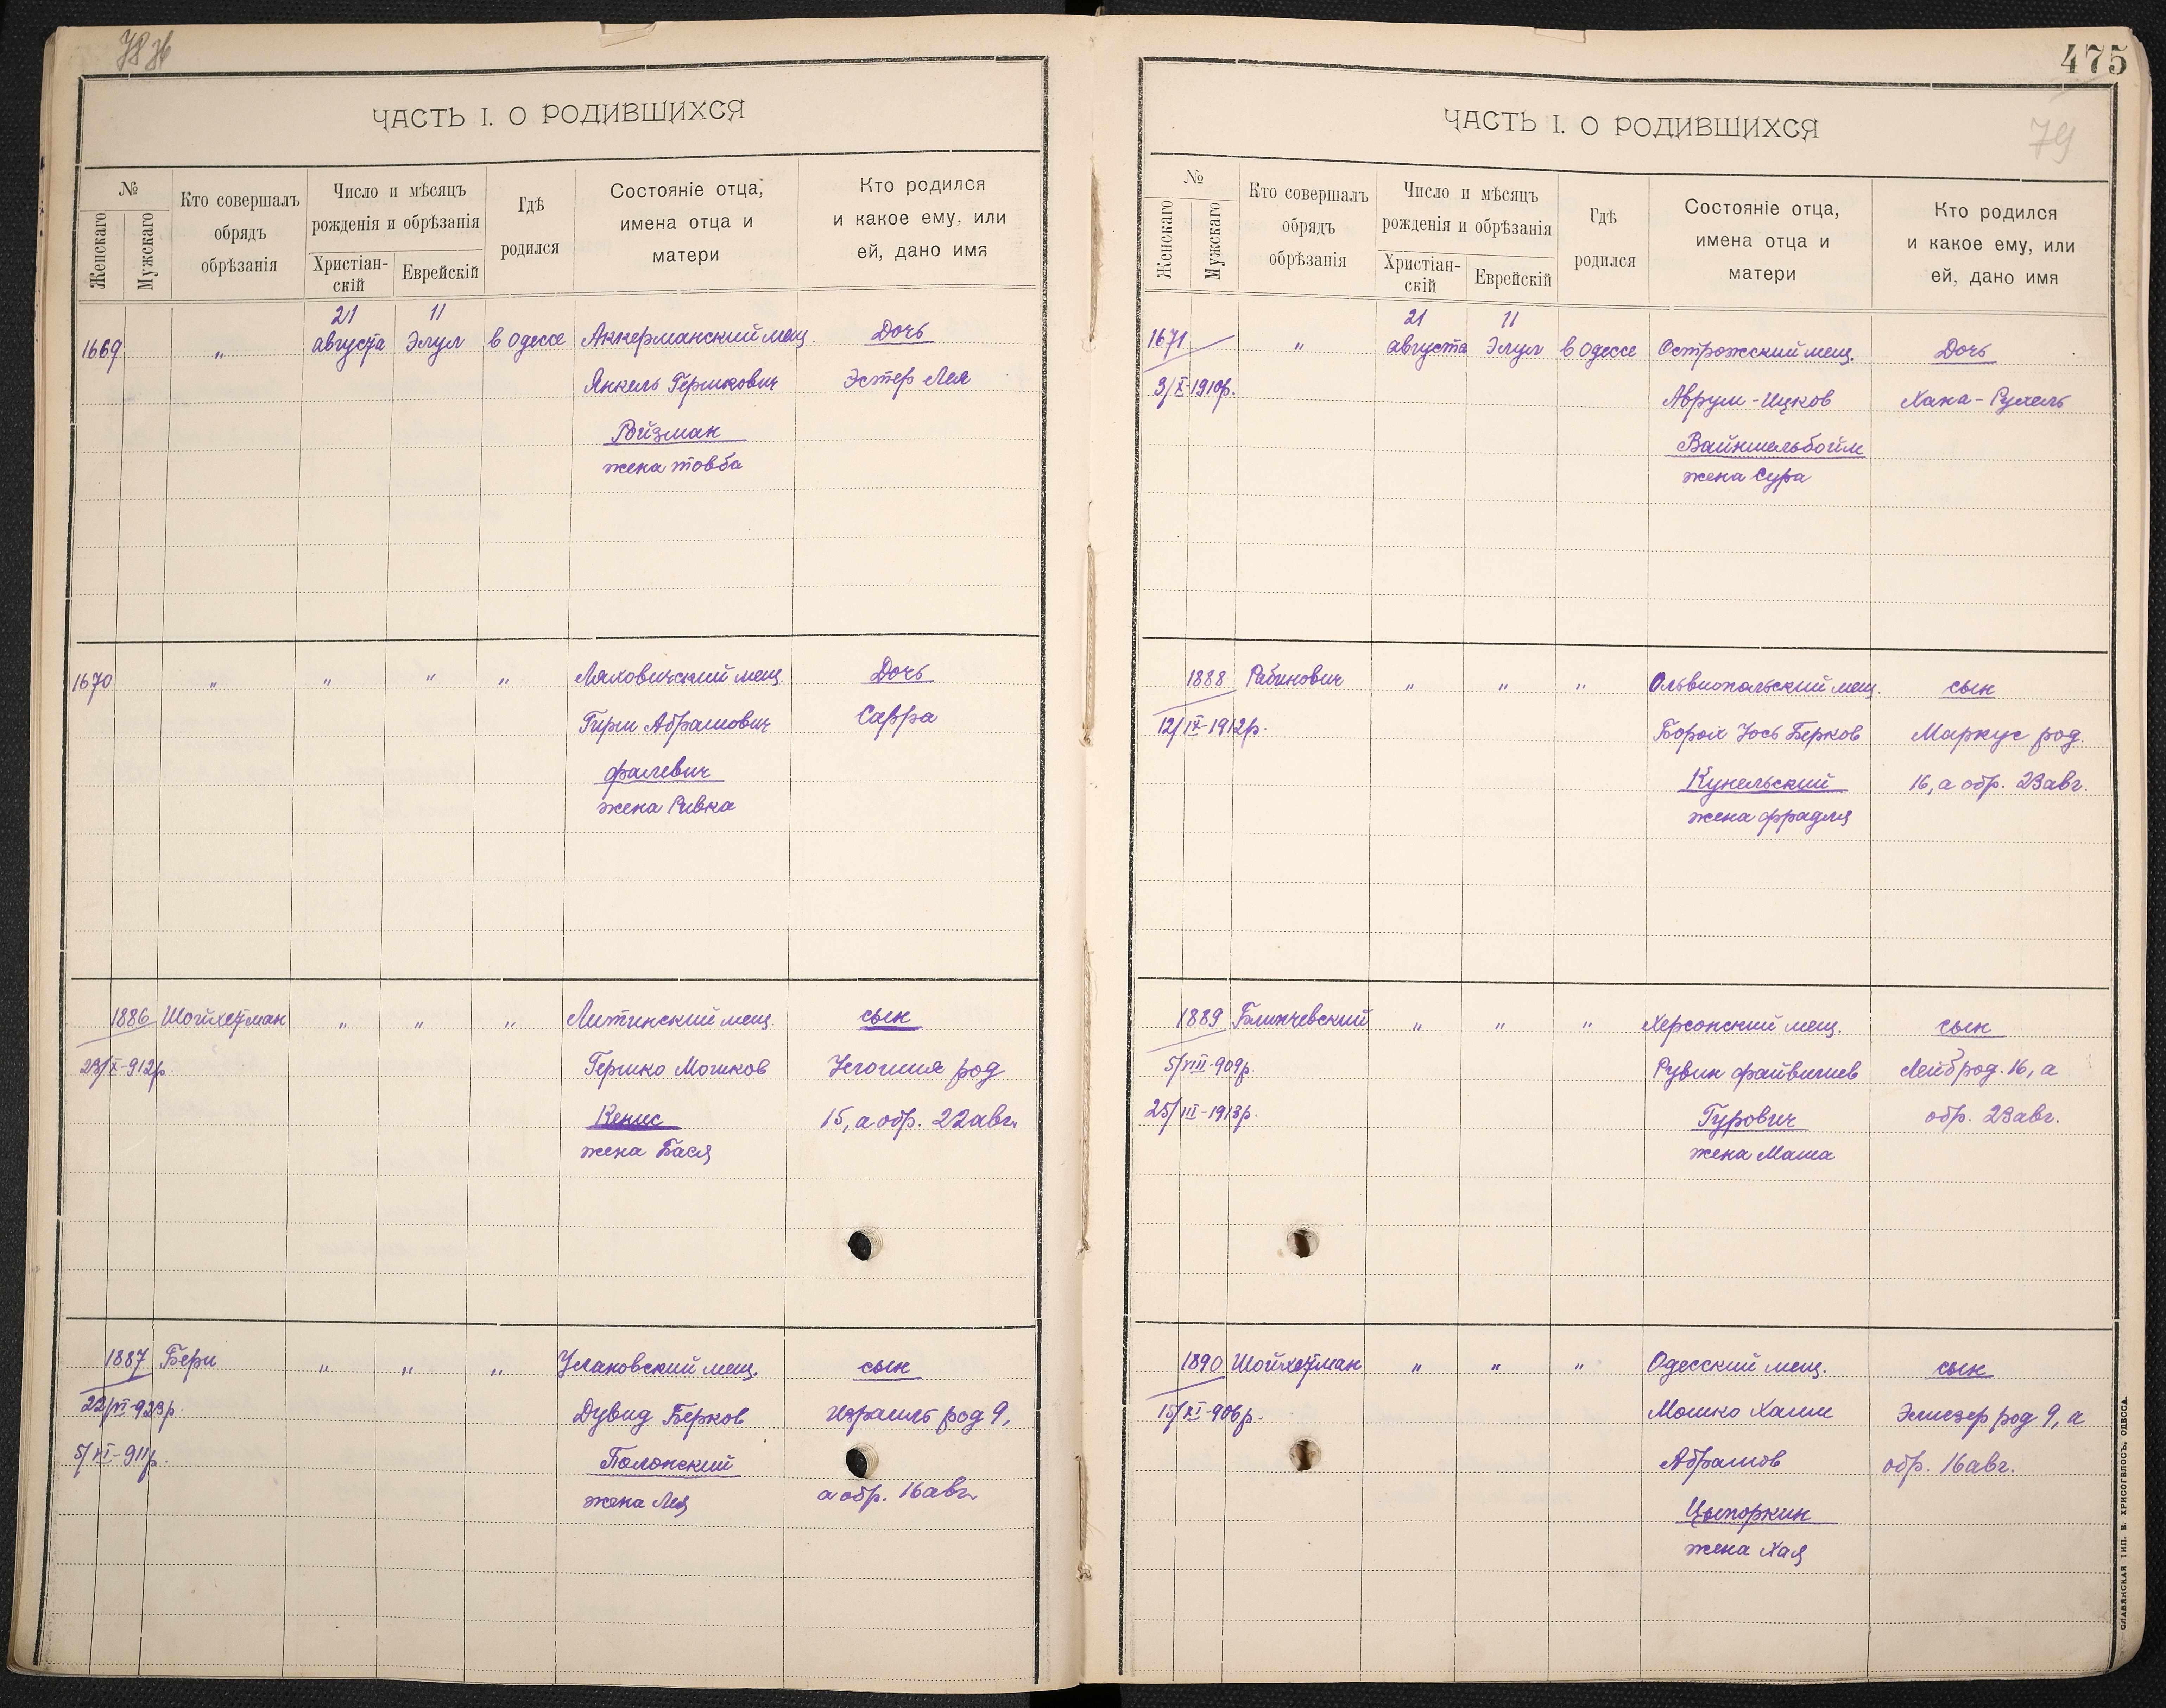 ЧАСТЬ I. О РОДИВШИХСЯ
№
Женскаго
Мужскаго
Кто совершалъ
обрядъ
обрѣзанія
Число и мѣсяцъ
рожденія и обрѣзанія
Христіан-
скій
Еврейскій
Гдѣ
родился
Состояніе отца,
имена отца и
матери
Кто родился
и какое ему, или
ей, дано имя
21 11
1669 „ августа Элул в Одессе Аккерманский мещ. Дочь
Янкель Гершкович Эстер Лея
Ройзман
жена Товба
1670 „ „ „ „ Ляховичский мещ. Дочь
Гирш Абрамович Сарра
Фалевич
жена Ривка
1886 Шойхетман „ „ „ Литинский мещ. сын
23/X-912р. Гершко Мошков Иегошия род
Кенис 15, а обр. 22 авг.
жена Бася
1887 Бери „ „ „ Улановский мещ. сын
22/VI-923р. Дувид Берков Израиль род 9,
5/XI-911р. Полонский
а обр. 16 авг.
жена Лея
475
79
ЧАСТЬ I. О РОДИВШИХСЯ
№
Женскаго
Мужскаго
Кто совершалъ
обрядъ
обрѣзанія
Число и мѣсяцъ
рожденія и обрѣзанія
Христіан-
скій
Еврейскій
Гдѣ
родился
Состояніе отца,
имена отца и
матери
Кто родился
и какое ему, или
ей, дано имя
21 11
1671 „ августа Элул в Одессе Острожский мещ. Дочь
3/X-1910р. Аврум-Ицков Хана-Рухель
Вайншельбойм
жена Сура
1888 Рабинович „ „ „ Ольвиопольский мещ. сын
12/IX-1912р. Борох Иось Берков Маркус род.
Кунельский 16, а обр. 23 авг.
жена Фрадля
1889 Блинчевский „ „ „ Херсонский мещ. сын
5/VIII-909р. Рувин Файвишев Лейб род. 16, а
25/III-1913р. Гурович обр. 23 авг.
жена Маша
1890 Шойхетман „ „ „ Одесский мещ. сын
15/XI-906р. Мошко Хаим Элиезер род 9, а
Абрамов обр. 16 авг.
Цыпоркин
жена Хая
СЛАВЯНСКАЯ ТИП. Н. ХРИСОГЕЛОСЪ, ОДЕССА.